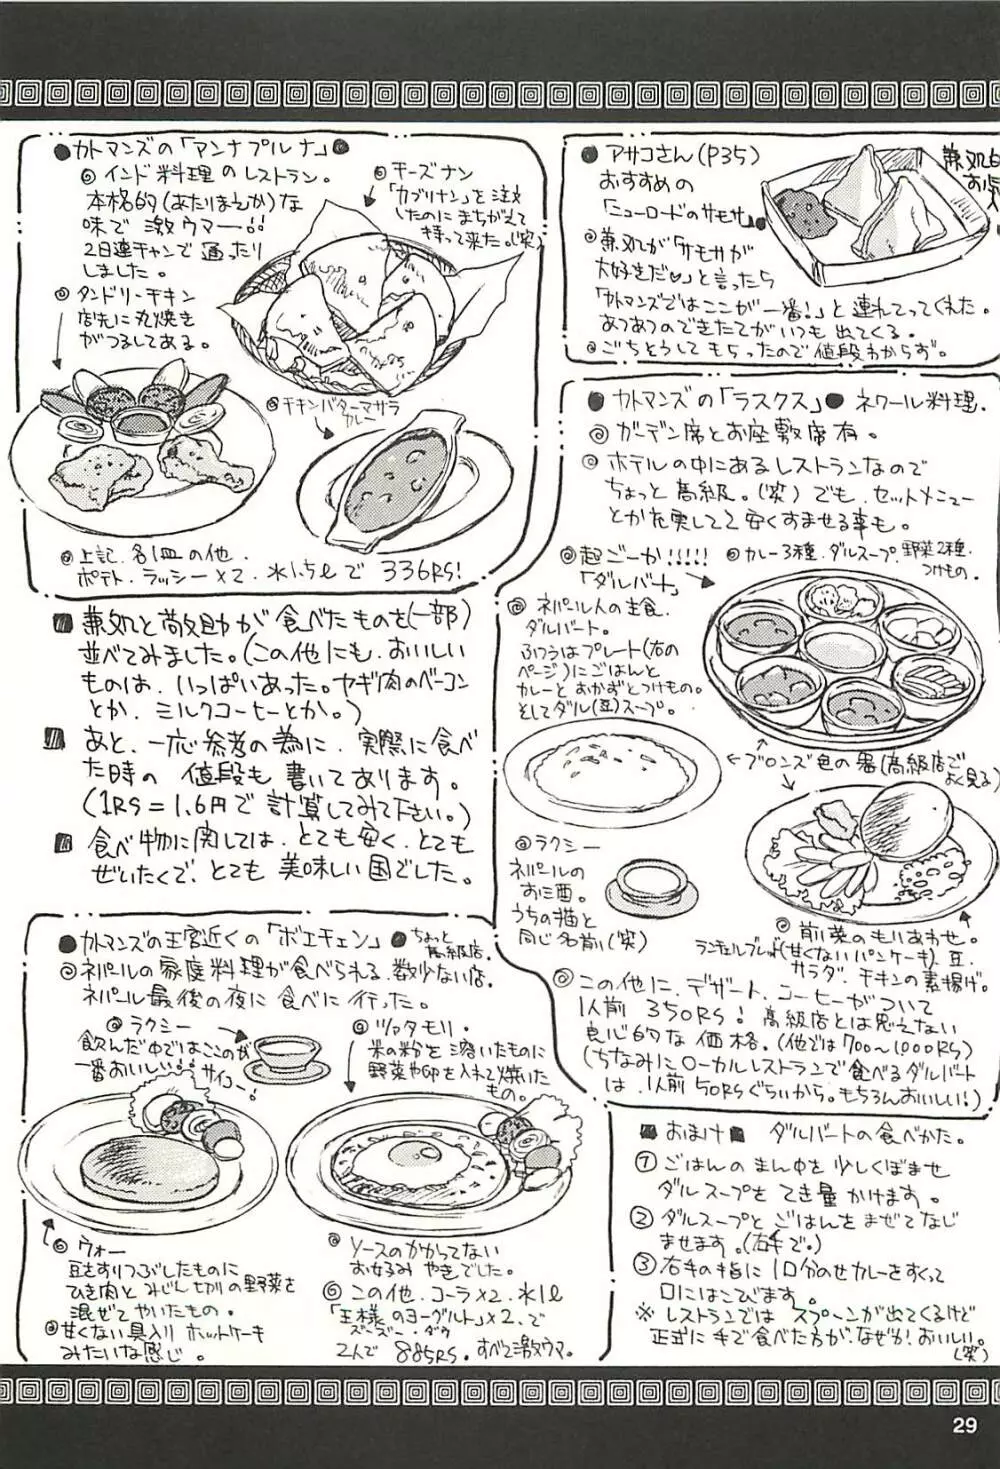 ●カトマンズの「アンナプルナ」●
◎インド料理のレストラン。
本格的(あたりまえか)な
味で激ウマー!!
2日連チャンで通ったり
しました。
◎チーズナン
「カブリナン」を注文
したのにまちがえて
持って来た。(笑)
◎タンドリーチキン
店先に丸焼き
がつるしてある。
◎チキンバターマサラ
カレー
◎上記、各1皿の他
ポテト、ラッシー×2、水1.5ℓで 336RS!
■兼処と敬助が食べたものを(一部)
並べてみました。(この他にも、おいしい
ものは、いっぱいあった。ヤギ肉のベーコン
とか、ミルクコーヒーとか。)
■あと、一応参考の為に、実際に食べ
た時の 値段も 書いてあります。
(1RS=1.6円で計算してみて下さい。)
■食べ物に関しては、とても安く、とても
ぜいたくで、とても 美味しい国でした。
●カトマンズの王宮近くの「ボエチェン」●ちょっと
高級店。
◎ネパールの家庭料理が食べられる数少ない店。
ネパール最後の夜に食べに行った。
◎ラクシー
飲んだ中ではここのが
一番おいしい!!サイコー!
◎ツァタモリ・
米の粉を溶いたものに
野菜や卵を入れて焼いた
もの。
◎ウォー
豆をすりつぶしたものに
ひき肉とみじん切りの野菜を
混ぜてやいたもの。
◎甘くない具入りホットケーキ
みたいな感じ。
◎ソースのかかってない
お好みやきでした。
◎この他、コーラ×2、水1ℓ
「王様のヨーグルト」×2、で
ズーズー・ダウ
2人で 885RS。すべて激ウマ。
●アサコさん(P35)
おすすめの
「ニューロードのサモサ」●
◎兼処が「サモサが
大好きだ♡」と言ったら
「カトマンズではここが一番!」と連れてってくれた。
あつあつのできたてがいつも出てくる。
◎ごちそうしてもらったので値段わからず。
●カトマンズの「ラスクス」●ネワール料理.
◎ガーデン席とお座敷席有。
◎ホテルの中にあるレストランなので
ちょっと高級。(笑)でも、セットメニュー
とか充実してて安くすませる事も。
◎超ごーか!!!!!
「ダルバート」
◎カレー3種、ダルスープ、野菜2種、
つけもの.
◎ネパール人の主食、
ダルバート。
ふつうはプレート(右の
ページ)にごはんと
カレーとおかずとつけもの。
そしてダル(豆)スープ。
←ブロンズ色の器(高級店で
よく見る)
◎ラクシー
ネパールの
お酒。
うちの猫と
同じ名前(笑)
◎前菜のもりあわせ。
(甘くないパンケーキ)、豆、
サラダ、チキンの素揚げ。
◎この他に、デザート、コーヒーがついて
1人前 350RS!高級店とは思えない
良心的な価格。(他では700〜1000RS)
(ちなみにローカルレストランで食べるダルバート
は、1人前50RSぐらいから。もちろんおいしい!)
■おまけ■ ダルバートの食べかた。
①ごはんのまん中を少しくぼませ
ダルスープをてき量かけます。
②ダルスープとごはんをまぜてなじ
ませます。(右手で。)
③右手の指に1口分のせカレーをすくって
口にはこびます。
※レストランではスプーンが出てくるけど
正式に手で食べた方が、なぜか!おいしい。
(笑)
29